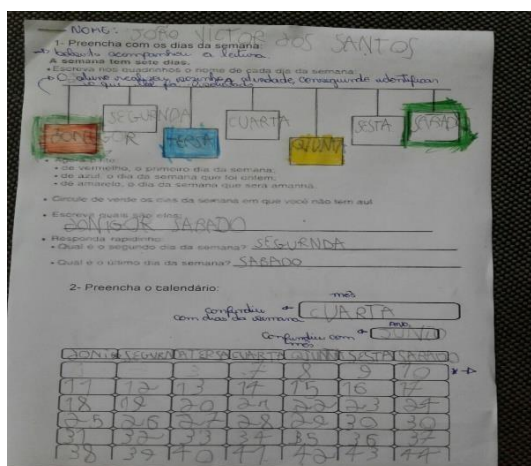 NOME: JOÃO VICTOR DOS SANTOS
1- Preencha com os dias da semana:
acompanhou a leitura
A semana tem sete dias.
• Escreva nos quadrinhos o nome de cada dia da semana:
O aluno realizou sozinho a atividade, conseguindo identificar
o que
SEGURNDA
CUARTA
SESTA
SABADO
TERSA
• de vermelho, o primeiro dia da semana;
• de azul, o dia da semana que foi ontem;
• de amarelo, o dia da semana que será amanhã.
• Circule de verde os dias da semana em que você não tem aul
• Escreva quais são eles:
DONIGOR SABADO
• Responda rapidinho:
• Qual é o segundo dia da semana? SEGURNDA
• Qual é o último dia da semana? SABADO
2- Preencha o calendário:
mês
confundiu CUARTA
com dias da semana
ano
Confundiu com JUNIO
mês
SEGURNDA TERSA CUARTA SESTA SABADO
7 8 9 10
11 12 13 14 15 16 17
18 19 20 21 22 23 24
25 26 27 28 29 30 30
31 32 33 34 35 36 37
38 39 40 41 42 43 44